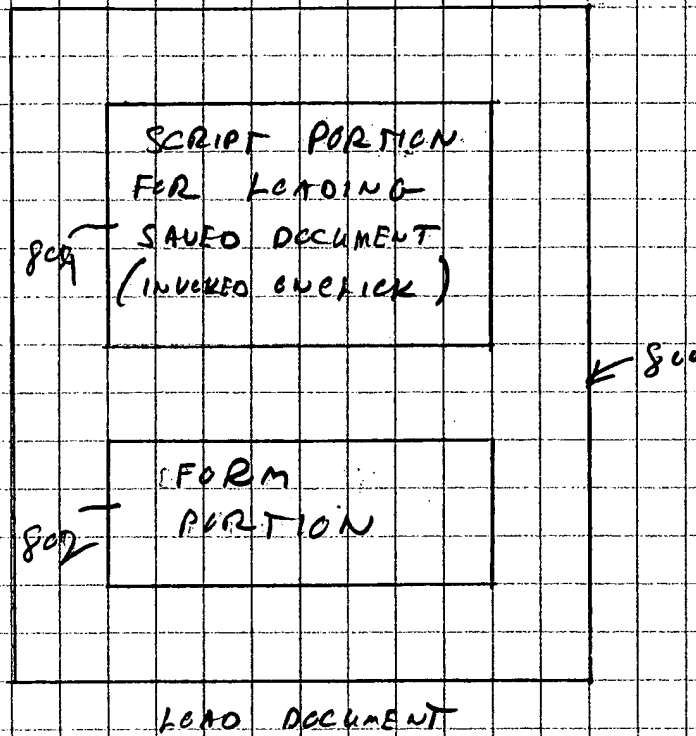 SCRIPT PORTION
FOR LOADING
SAVED DOCUMENT
(INVOKED ONCLICK)
804
800
FORM
PORTION
802
LOAD DOCUMENT